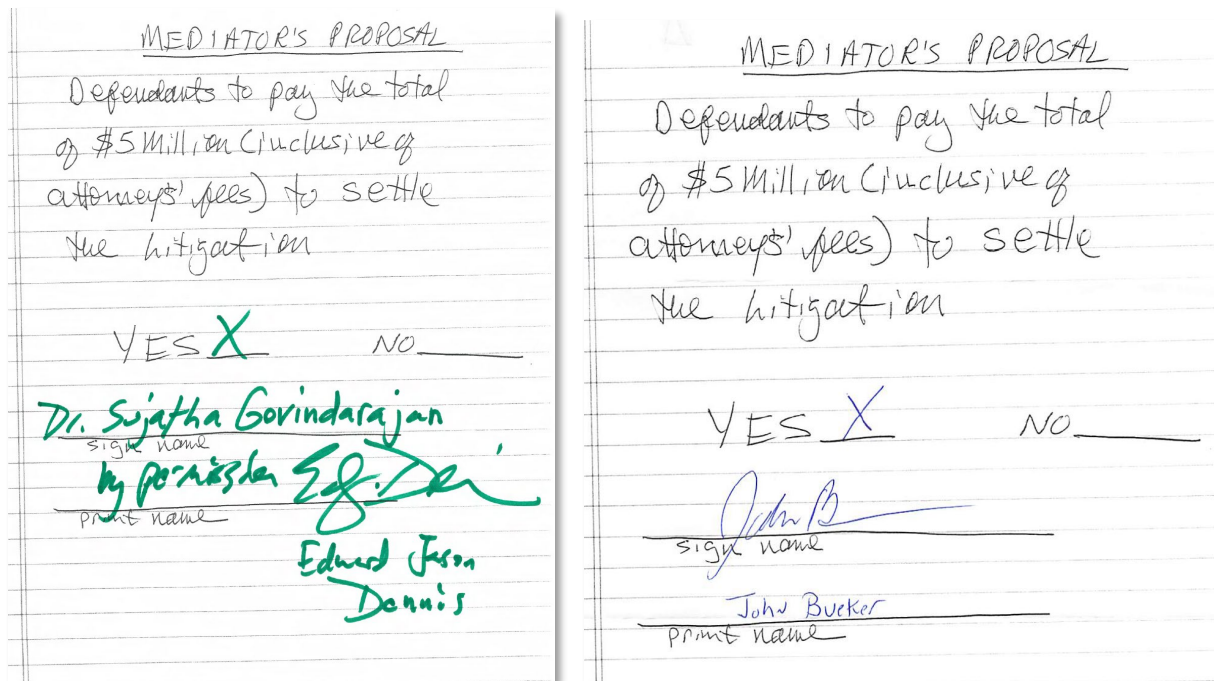 MEDIATOR'S PROPOSAL
Defendants to pay the total
of $5 Million (inclusive of
attorneys' fees) to settle
the litigation
YES X NO
Dr. Sujatha Govindarajan
sign name
by permission
print name
Edward Jason
Dennis
MEDIATOR'S PROPOSAL
Defendants to pay the total
of $5 Million (inclusive of
attorneys' fees) to settle
the litigation
YES X NO
John B
sign name
John Bueker
print name